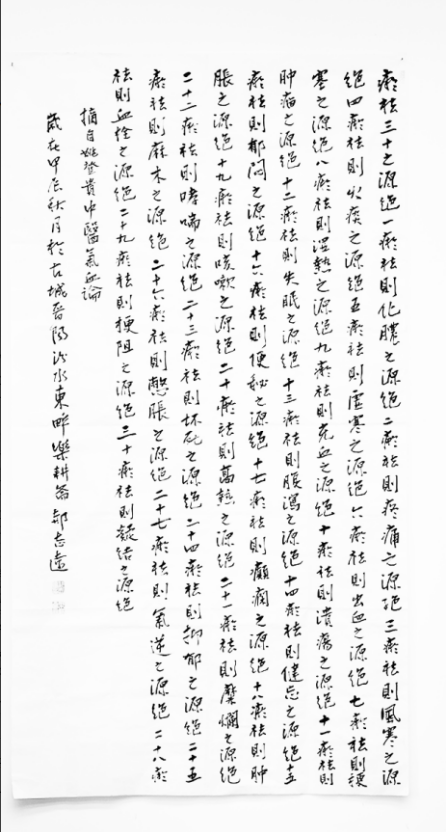 瘀祛三十之源絕一瘀祛則化膿之源絕二瘀祛則疼痛之源絕三瘀祛則風寒之源
絕四瘀祛則火痰之源絕五瘀祛則虛寒之源絕六瘀祛則出血之源絕七瘀祛則
寒之源絕八瘀祛則濕熱之源絕九瘀祛則充血之源絕十瘀祛則潰瘍之源絕十一瘀祛則
肿瘤之源絕十二瘀祛則失眠之源絕十三瘀祛則腹瀉之源絕十四瘀祛則健忘之源絕十五
瘀祛則郁悶之源絕十六瘀祛則便秘之源絕十七瘀祛則癲癇之源絕十八瘀祛則肿
脹之源絕十九瘀祛則咳嗽之源絕二十瘀祛則高熱之源絕二十一瘀祛則糜爛之源絕
二十二瘀祛則哮喘之源絕二十三瘀祛則坏死之源絕二十四瘀祛則抑郁之源絕二十五
瘀祛則麻木之源絕二十六瘀祛則憋脹之源絕二十七瘀祛則氣逆之源絕二十八瘀
祛則血栓之源絕二十九瘀祛則梗阻之源絕三十瘀祛則凝结之源絕
摘自姚登貴中醫氣血論
歲在甲辰秋月於古城晉陽汾水東畔樂耕翁郝志遠